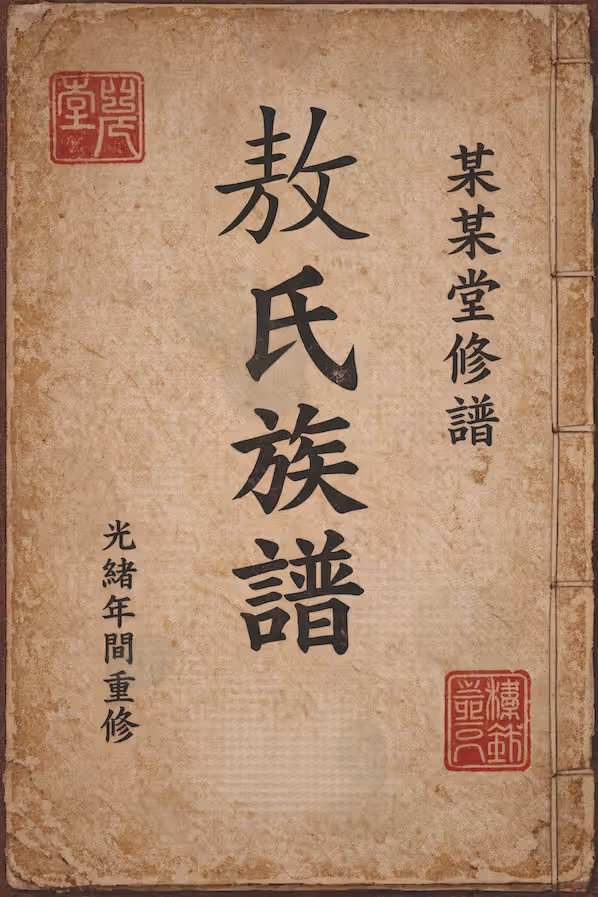 某某堂修譜
敖氏族譜
光緒年間重修